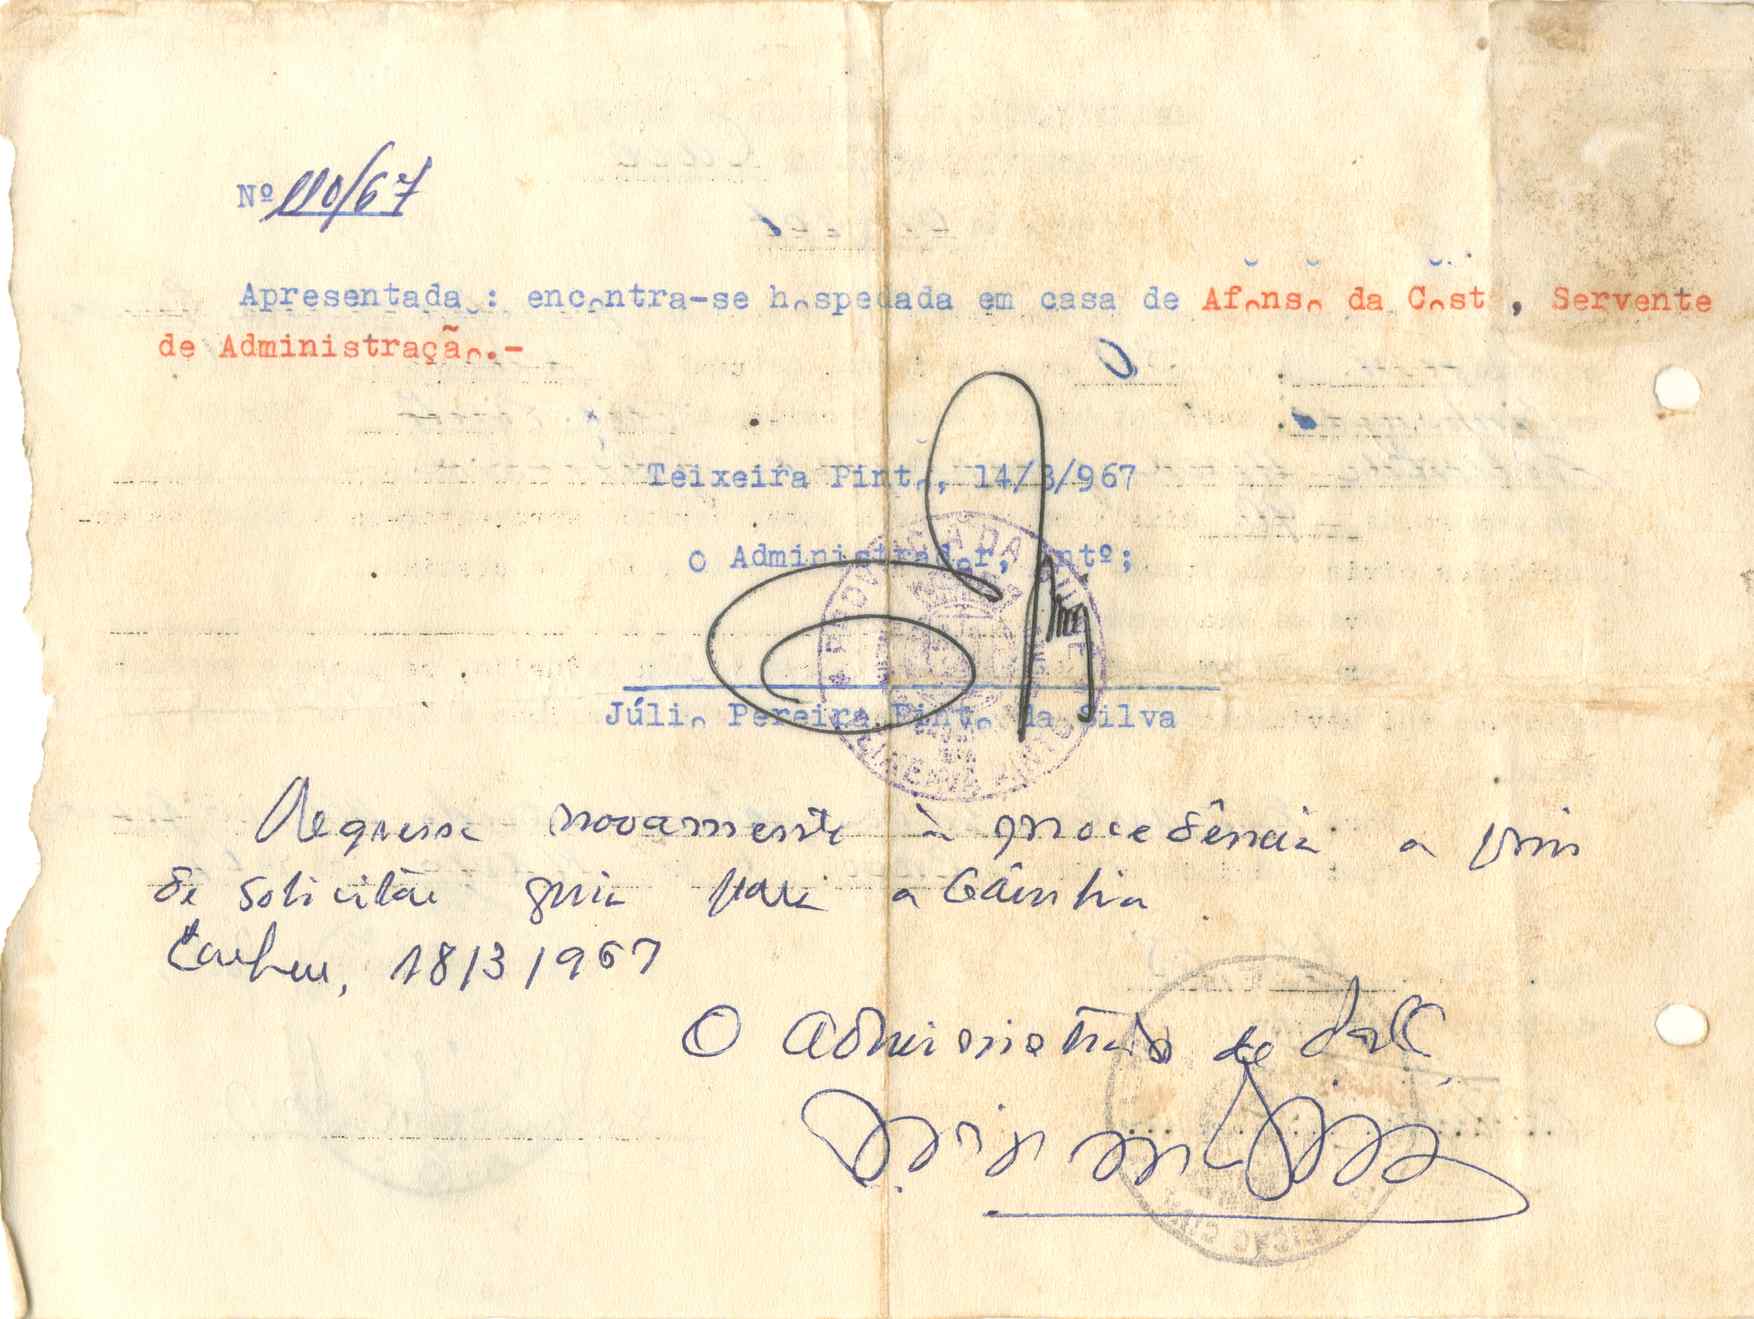 Nº 110/67
Apresentada : encontra-se hospedada em casa de Afonso da Cost , Servente
de Administração.-
Teixeira Pinto, 14/3/967
O Administrador, Intº;
Júlio Pereira Pinto da Silva
PROVINCIA DA GUINÉ
TEIXEIRA PINTO
Regressa novamente à procedência a fim
de solicitar guia para a Gâmbia
Cacheu, 18/3/1967
O Administrador de